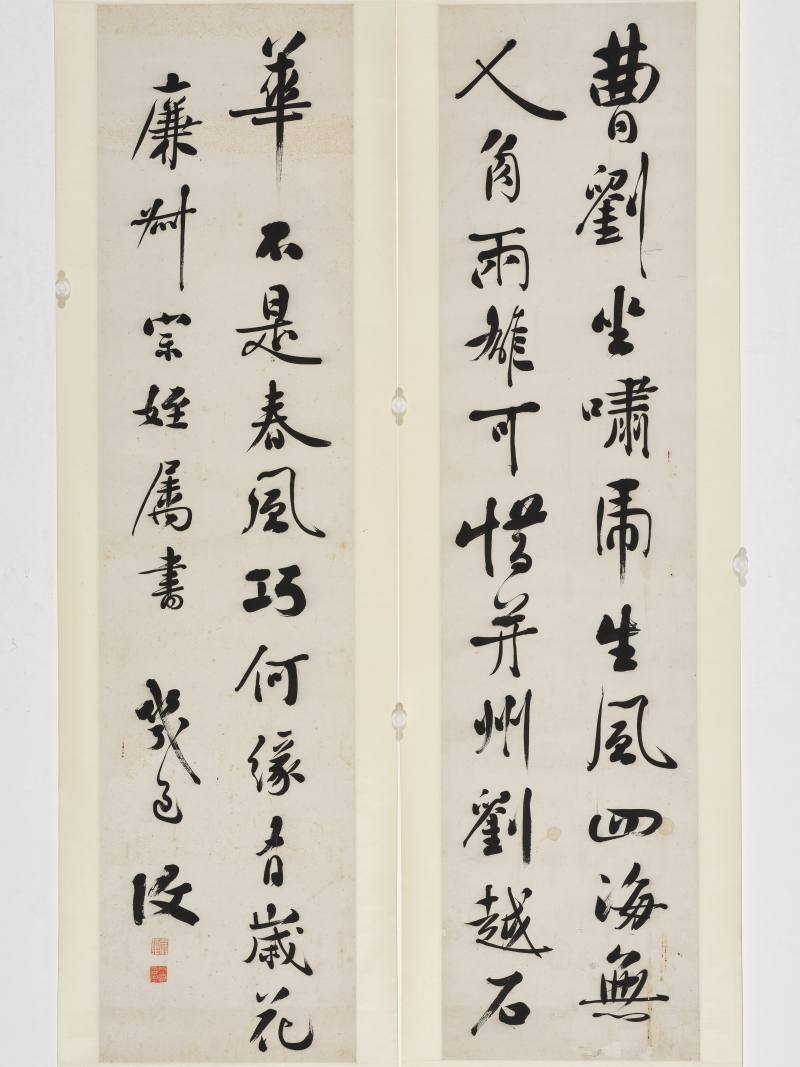 曹劉坐嘯虎生風四海無
人角兩雄可惜并州劉越石
華不是春風巧何緣有歲花
廉宗姪屬書 幾道 復